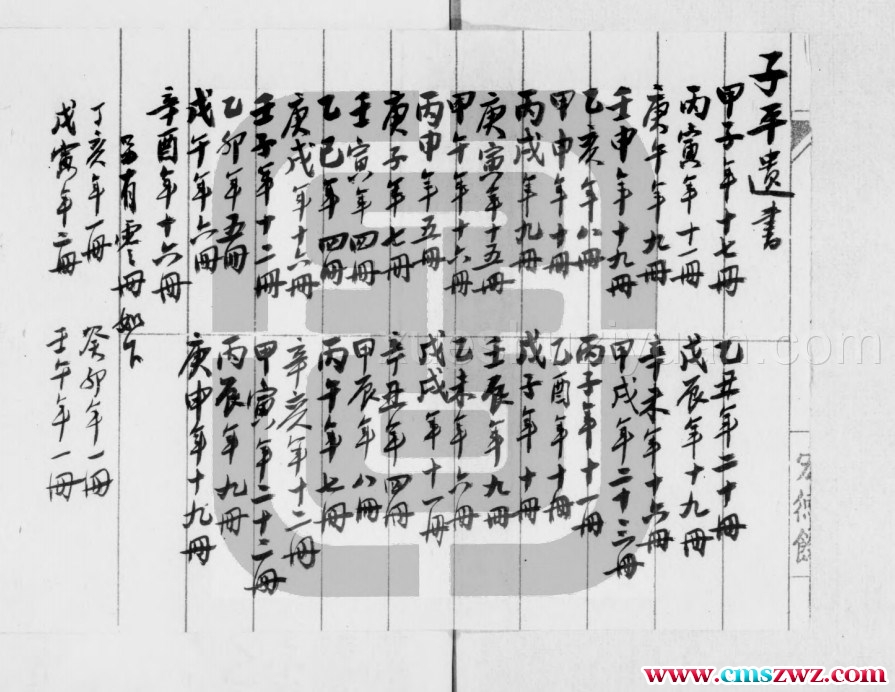 子平遺書
甲子年十七冊
乙丑年二十冊
丙寅年十一冊
戊辰年十九冊
庚午年九冊
辛未年十六冊
壬申年十九冊
甲戌年二十三冊
乙亥年八冊
丙子年十一冊
甲申年十冊
乙酉年十冊
丙戌年九冊
戊子年十冊
庚寅年十五冊
壬辰年九冊
甲午年十六冊
乙未年六冊
丙申年五冊
戊戌年十一冊
庚子年七冊
辛丑年四冊
壬寅年四冊
甲辰年八冊
乙巳年四冊
丙午年七冊
庚戌年十六冊
辛亥年十二冊
壬子年十二冊
甲寅年二十二冊
乙卯年五冊
丙辰年九冊
戊午年六冊
庚申年十九冊
辛酉年十六冊
另有零冊如下
丁亥年一冊
癸卯年一冊
戊寅年二冊
壬午年一冊
www.cmszwz.com